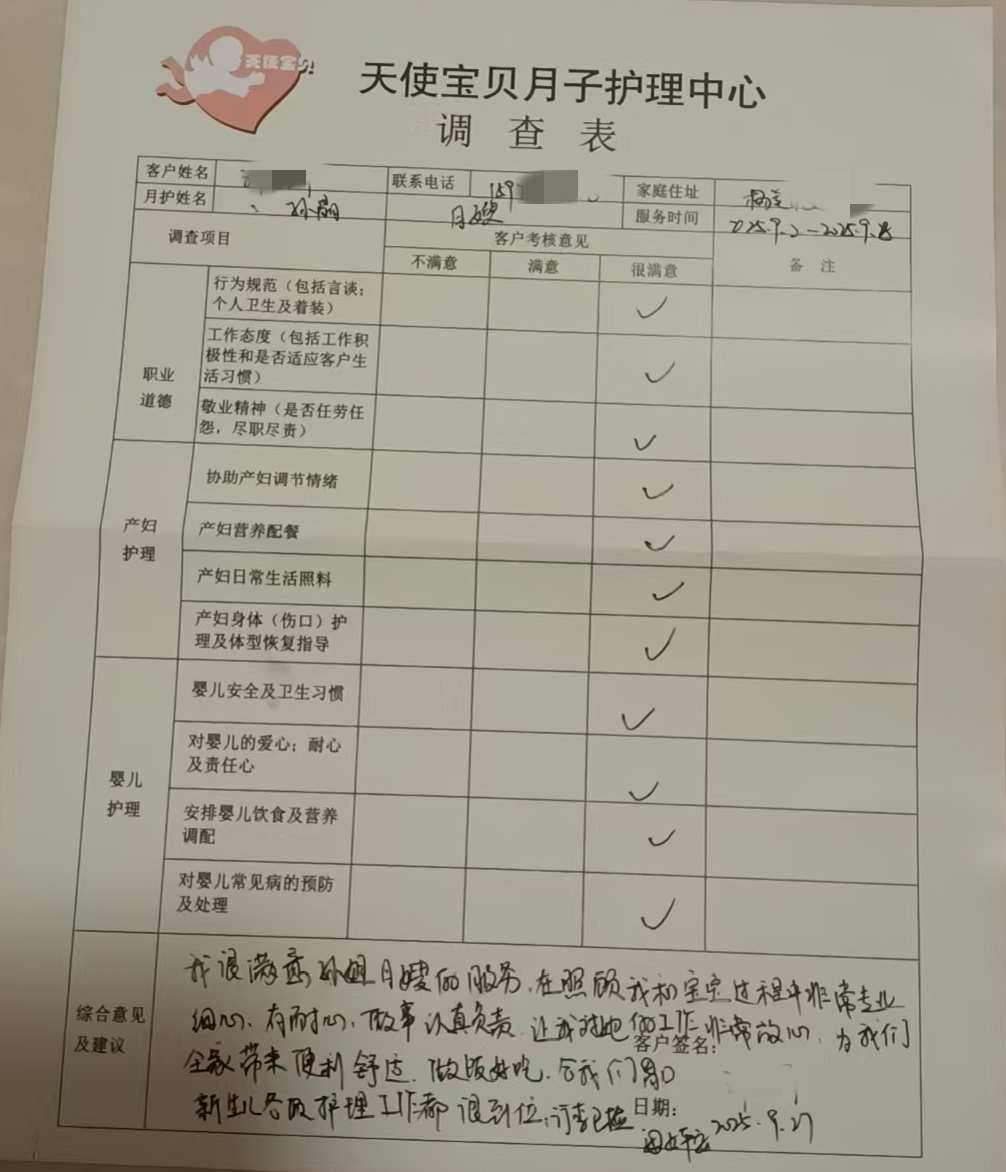 天使宝贝
天使宝贝月子护理中心
调 查 表
客户姓名 联系电话 159 家庭住址
月护姓名 孙 月嫂 服务时间 2025.9.2-2025.9.
调查项目 客户考核意见 备 注
不满意 满意 很满意
职业道德
行为规范（包括言谈；
个人卫生及着装）
工作态度（包括工作积
极性和是否适应客户生
活习惯）
敬业精神（是否任劳任
怨，尽职尽责）
产妇护理
协助产妇调节情绪
产妇营养配餐
产妇日常生活照料
产妇身体（伤口）护
理及体型恢复指导
婴儿护理
婴儿安全及卫生习惯
对婴儿的爱心；耐心
及责任心
安排婴儿饮食及营养
调配
对婴儿常见病的预防
及处理
综合意见及建议
我很满意孙姐月嫂的服务，在照顾我和宝宝过程中非常专业
细心、有耐心，做事认真负责，让我对她的工作非常放心，为我们
客户签名：
全家带来便利舒适，做饭好吃，合我们胃口
新生儿各 护理工作都很到位，
日期：
2025.9.27